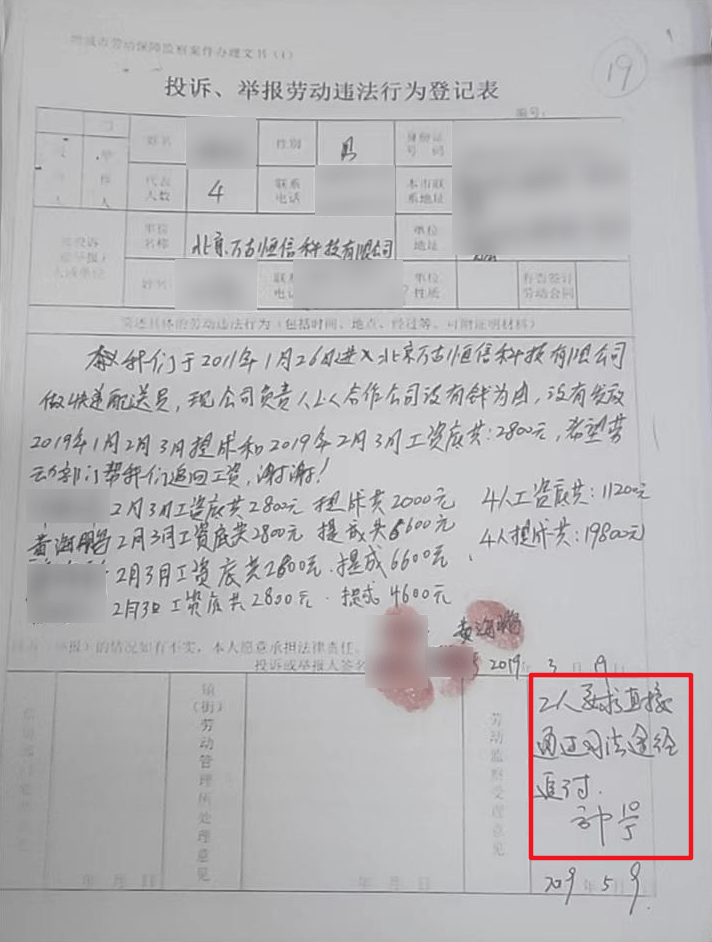 增城市劳动保障监察案件办理文书（1）
19
投诉、举报劳动违法行为登记表
编号：
姓名 性别 男 身份证号码
代表人数 4 联系电话 本市联系地址
单位名称 北京万古恒信科技有限公司 单位地址
姓名 联系电话 单位性质 有否签订劳动合同
简述具体的劳动违法行为（包括时间、地点、经过等，可附证明材料）
我们于2011年1月26日进入北京万古恒信科技有限公司
做快递配送员，现公司负责人以合作公司没有钱为由，没有发放
2019年1月2月3月提成和2019年2月3月工资底共：2800元，希望劳
动部门帮我们追回工资，谢谢！
2月3月工资底共2800元 提成共2000元 4人工资底共：11200元
黄海鹏 2月3月工资底共2800元 提成共6600元 4人提成共：19800元
2月3月工资底共2800元．提成6600元
2月3日工资底共2800元．提成4600元
黄海鹏
的情况如有不实，本人愿意承担法律责任。
投诉或举报人签名 2019年3月19日
镇（街）劳动管理所处理意见
劳动监察受理意见
2人要求直接
通过司法途径
追讨．
年 月 日 年 月 日 2019年5月9